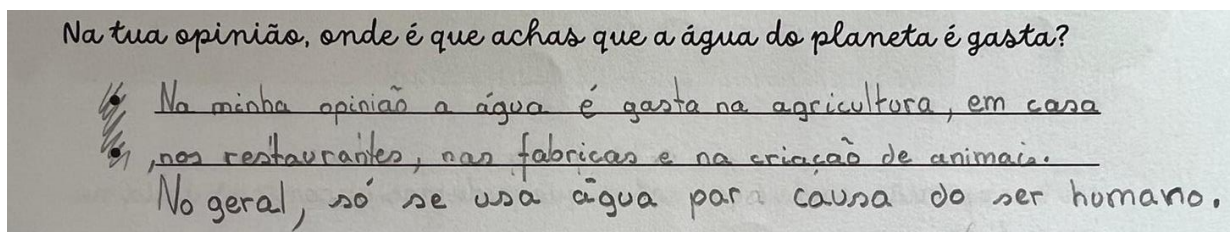 Na tua opinião, onde é que achas que a água do planeta é gasta?
Na minha opinião a água é gasta na agricultura, em casa
, nos restaurantes, nas fabricas e na criacão de animais.
No geral, só se usa água para causa do ser humano.